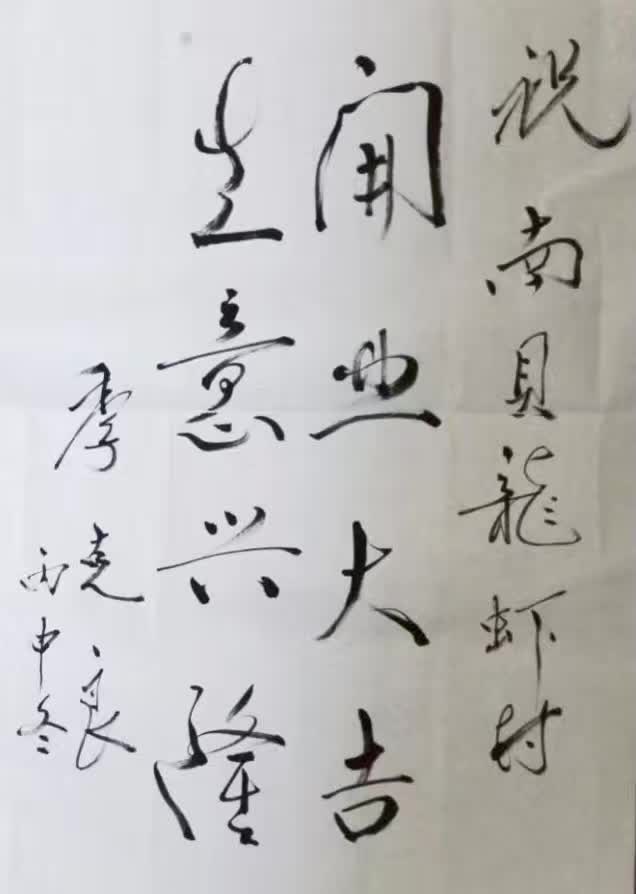 祝南贝龍虾村
开业大吉
生意兴隆
李克良
丙申冬